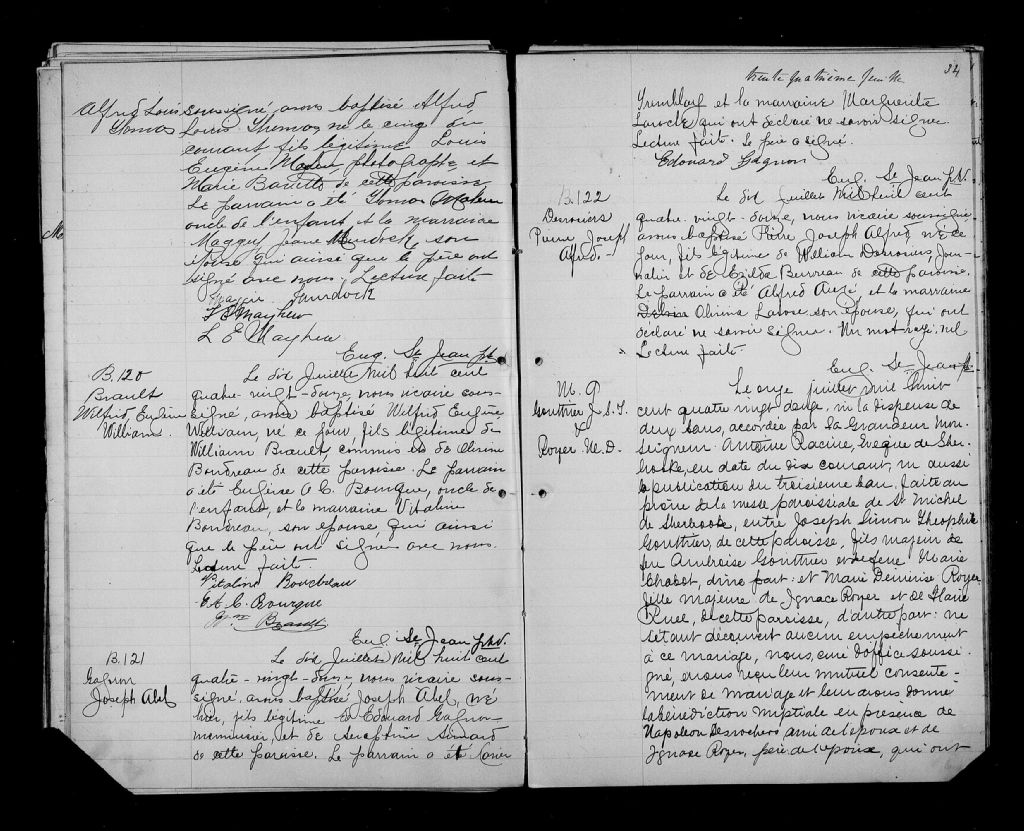 Alfred Louis
Thomas
soussigné, avons baptisé Alfred
Louis Thomas né le cinq du
courant fils légitime Louis
Eugène photographe et
Marie de cette paroisse
Le parrain a été Thomas
oncle de l'enfant et la marraine
Maggy Jeane Murdock son
épouse qui ainsi que le père ont
signé avec nous, Lecture faite
Murdock
Mayhew
L E Mayhew
Eug. St Jean ptr
B.120
Brault
Wilfrid Eugène
William.
Le dix Juillet Mil huit cent
quatre-vingt-douze, nous vicaire sous-
signé, avons baptisé Wilfrid Eugène
William, né ce jour, fils légitime de
William Brault, commis et de
Boudreau de cette paroisse. Le parrain
a été Eugène A C. Bourque, oncle de
l'enfant, et la marraine Vitaline
Boudreau, son épouse qui ainsi
que le père ont signé avec nous.
Lecture faite.
Vitaline Boudreau
E. A. C. Bourque
Wm Brault
Eug. St Jean ptr V.
B.121
Gagnon
Joseph Abel
Le dix Juillet Mil huit cent
quatre-vingt-douze, nous vicaire sous-
signé, avons baptisé Joseph Abel, né
hier, fils légitime de Edouard Gagnon
menuisier, et de Séraphine Simard
de cette paroisse. Le parrain a été Xavier
trente quatrième feuille
34
Tremblay et la marraine Marguerite
Laroche qui ont déclaré ne savoir signer.
Lecture faite. Le père a signé.
Edouard Gagnon
Eug. St Jean ptr V.
B.122
Desrosiers
Pierre Joseph
Alfred.
Le dix juillet Mil huit cent
quatre-vingt-douze, nous vicaire soussigné
avons baptisé Pierre Joseph Alfred, né ce
jour, fils légitime de William Desrosiers, jour-
nalier et de Exilda de cette paroisse.
Le parrain a été Alfred Augé, et la marraine
Larose son épouse, qui ont
déclaré ne savoir signer. Un mot rayé nul
Lecture faite.
Eug. St Jean ptr
M. 9
Gonthier J. S. T.
&
Royer M. D.
Le onze juillet mil huit
cent quatre vingt douze, vu la dispense de
deux bans, accordée par Sa Grandeur Mon-
seigneur Antoine Racine, Evêque de Sher-
brooke, en date du dix courant, vu aussi
la publication du troisième ban, faite au
prône de la messe paroissiale de St Michel
de Sherbrooke, entre Joseph Simon Théophile
Gonthier, de cette paroisse, fils majeur de
feu Ambroise Gonthier et de feue Marie
Chabot, d'une part: et Marie Demerise Royer
fille majeure de Ignace Royer et de Marie
Ruel, de cette paroisse, d'autre part: ne
s'étant découvert aucun empêchement
à ce mariage, nous, curé d'office soussi-
gné, avons reçu leur mutuel consente-
ment de mariage et leur avons donné
la bénédiction nuptiale en présence de
Napoléon Desrochers ami de l'époux et de
Ignace Royer, père de l'épouse, qui ont